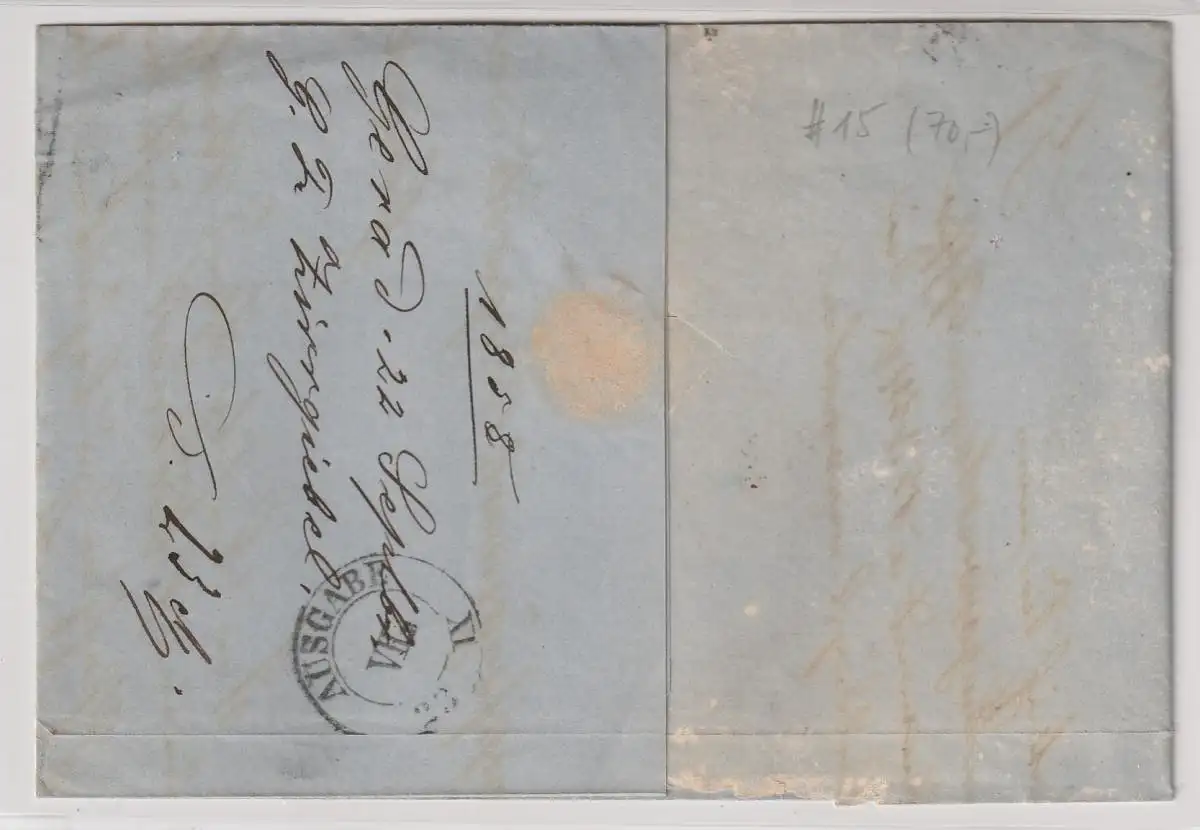 1858
Gera D. 22 Septbr
G. L. Fürgiebel,
S. 23
AUSGABE
VIII
XI
#15 (70,-)